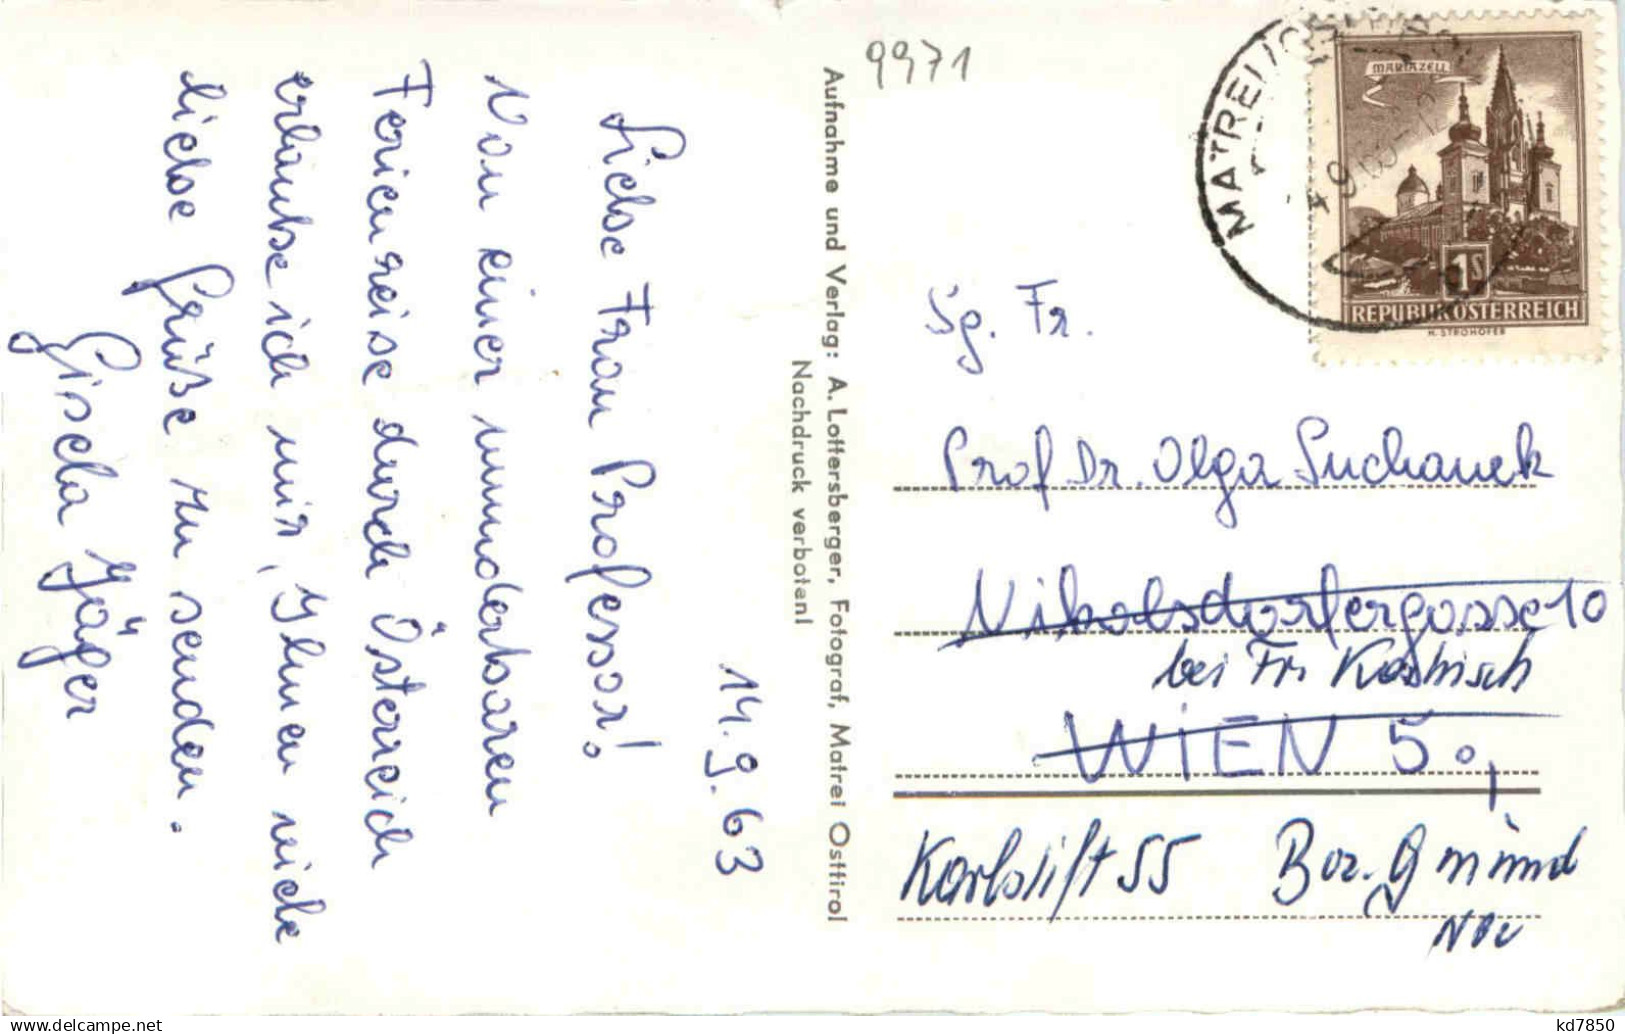 14.9.63
Liebe Frau Professor!
Von einer wunderbaren
Ferienreise durch Österreich
erlaube ich mir, Ihnen viele
liebe Grüße zu senden.
Gisela Jäger
Aufnahme und Verlag: A. Lottersberger, Fotograf, Matrei Osttirol
Nachdruck verboten!
9971
MATREI
MARIAZELL
1S
REPUBLIK ÖSTERREICH
H. STROHOFER
Sg. Fr.
Prof Dr. Olga Suchanek
Nikolsdorfergasse 10
bei Fr.
WIEN 5.,
Karlstift 55 Bez. Gmünd
NÖ
kd7850